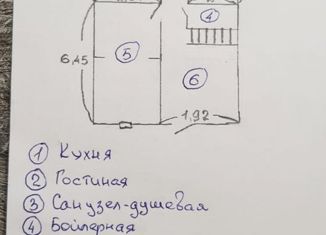 4
5
6,45
6
1,92
1 Кухня
2 Гостиная
3 Санузел-душевая
4 Бойлерная